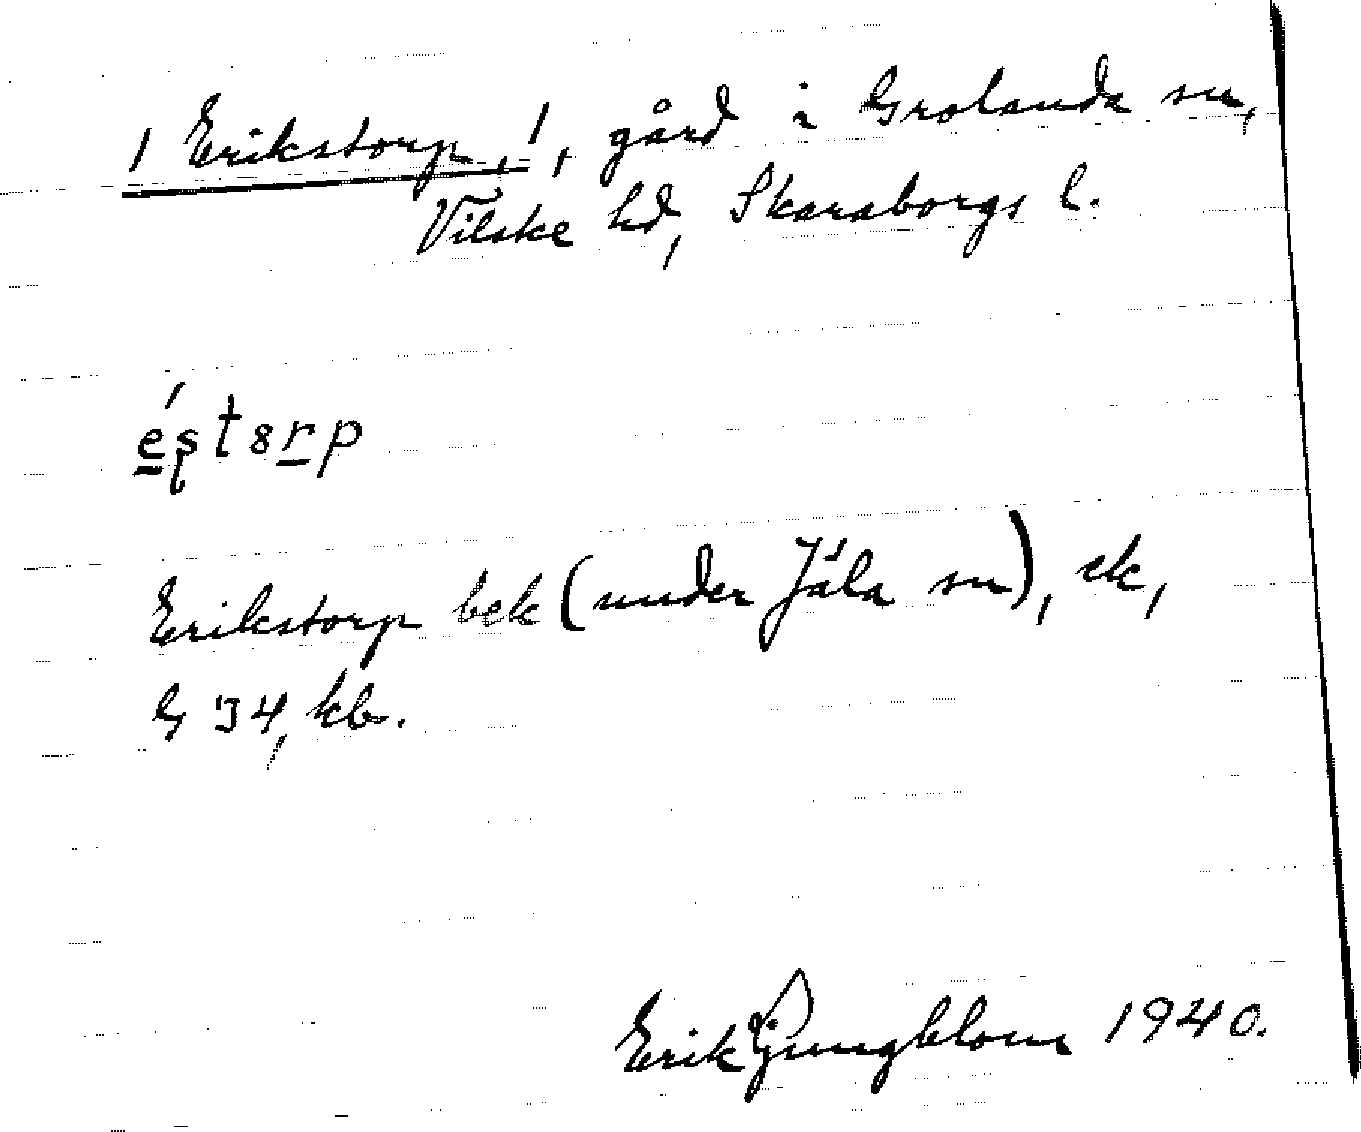 1 Erikstorp, 1, gård i Grolanda sn,
Vilske hd, Skaraborgs l.
éstorp
Erikstorp bek (under Jäla sn), ek,
G 34, kb.
Erik Ljungblom 1940.